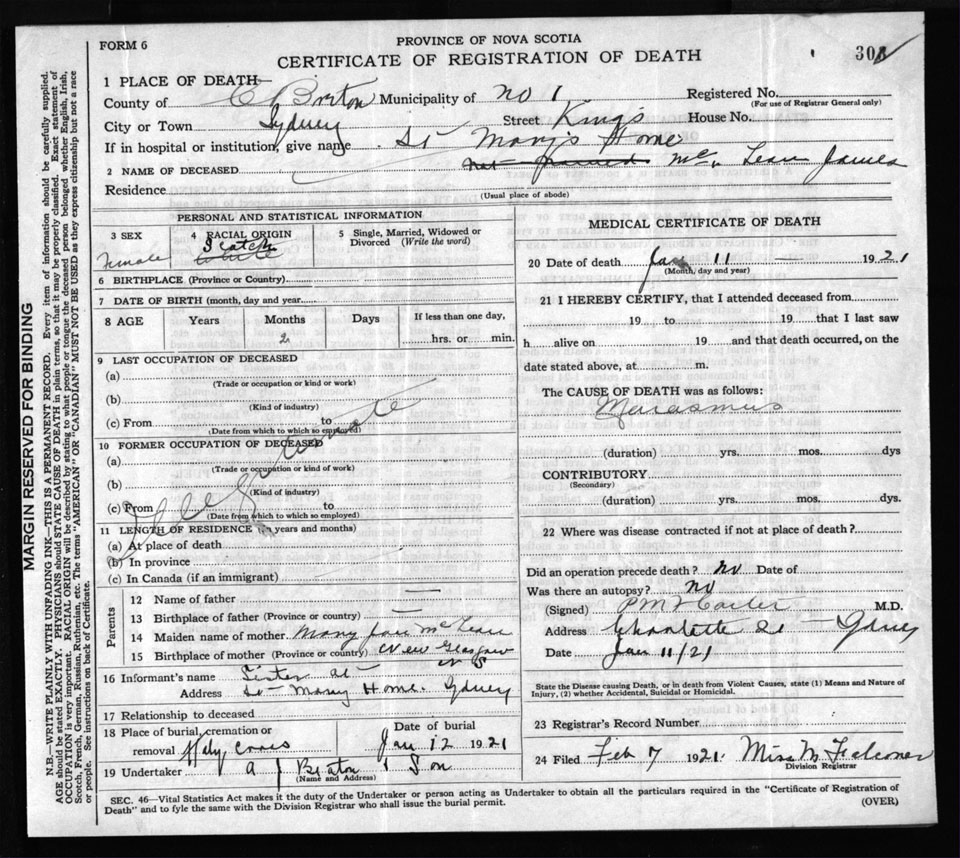 FORM 6
PROVINCE OF NOVA SCOTIA
CERTIFICATE OF REGISTRATION OF DEATH
1 PLACE OF DEATH—
County of C Breton Municipality of No 1 Registered No.
(For use of Registrar General only)
City or Town Sydney Street King's House No.
If in hospital or institution, give name St Mary's Home
2 NAME OF DECEASED Not named Mc Lean James
Residence
(Usual place of abode)
PERSONAL AND STATISTICAL INFORMATION
3 SEX Female
4 RACIAL ORIGIN Scotch White
5 Single, Married, Widowed or Divorced (Write the word)
6 BIRTHPLACE (Province or Country)
7 DATE OF BIRTH (month, day and year
8 AGE Years Months Days If less than one day,
2 hrs. or min.
9 LAST OCCUPATION OF DECEASED
(a)
(Trade or occupation or kind of work)
(b)
(Kind of industry)
(c) From to
(Date from which to which so employed)
10 FORMER OCCUPATION OF DECEASED
(a)
(Trade or occupation or kind of work)
(b)
(Kind of industry)
(c) From to
(Date from which to which so employed)
Illegitimate
11 LENGTH OF RESIDENCE (in years and months)
(a) At place of death
(b) In province
(c) In Canada (if an immigrant)
Parents
12 Name of father —
13 Birthplace of father (Province or country) —
14 Maiden name of mother Mary Jane McLean
15 Birthplace of mother (Province or country) New Glasgow N S
16 Informant's name Sister at
Address St Mary Home. Sydney
17 Relationship to deceased
18 Place of burial, cremation or removal Holy Cross
Date of burial Jan 12 1921
19 Undertaker A J Beaton & Son
(Name and Address)
MEDICAL CERTIFICATE OF DEATH
20 Date of death Jan 11 — 1921
(Month, day and year)
21 I HEREBY CERTIFY, that I attended deceased from
19 to 19 that I last saw
h alive on 19 and that death occurred, on the
date stated above, at m.
The CAUSE OF DEATH was as follows:
Marasmus
(duration) yrs. mos. dys
CONTRIBUTORY
(Secondary)
(duration) yrs. mos. dys.
22 Where was disease contracted if not at place of death?
Did an operation precede death? No Date of
Was there an autopsy? No
(Signed) M.D.
Address Charlotte St — Sydney
Date Jan 11/21
State the Disease causing Death, or in death from Violent Causes, state (1) Means and Nature of Injury, (2) whether Accidental, Suicidal or Homicidal.
23 Registrar's Record Number
24 Filed Feb 7 1921. Miss M Falconer
Division Registrar
SEC. 46—Vital Statistics Act makes it the duty of the Undertaker or person acting as Undertaker to obtain all the particulars required in the "Certificate of Registration of
Death" and to fyle the same with the Division Registrar who shall issue the burial permit.
(OVER)
MARGIN RESERVED FOR BINDING
N.B.—WRITE PLAINLY WITH UNFADING INK—THIS IS A PERMANENT RECORD. Every item of information should be carefully supplied.
AGE should be stated EXACTLY. PHYSICIANS should STATE CAUSE OF DEATH in plain terms, so that it may be properly classified. Exact statement of
OCCUPATION is very important. RACIAL ORIGIN will be described by stating to what people or tongue the deceased person belonged, whether English, Irish,
Scotch, French, German, Russian, Ruthenian, etc. The terms "AMERICAN" or "CANADIAN" MUST NOT BE USED as they express citizenship but not a race
or people. See instructions on back of Certificate.